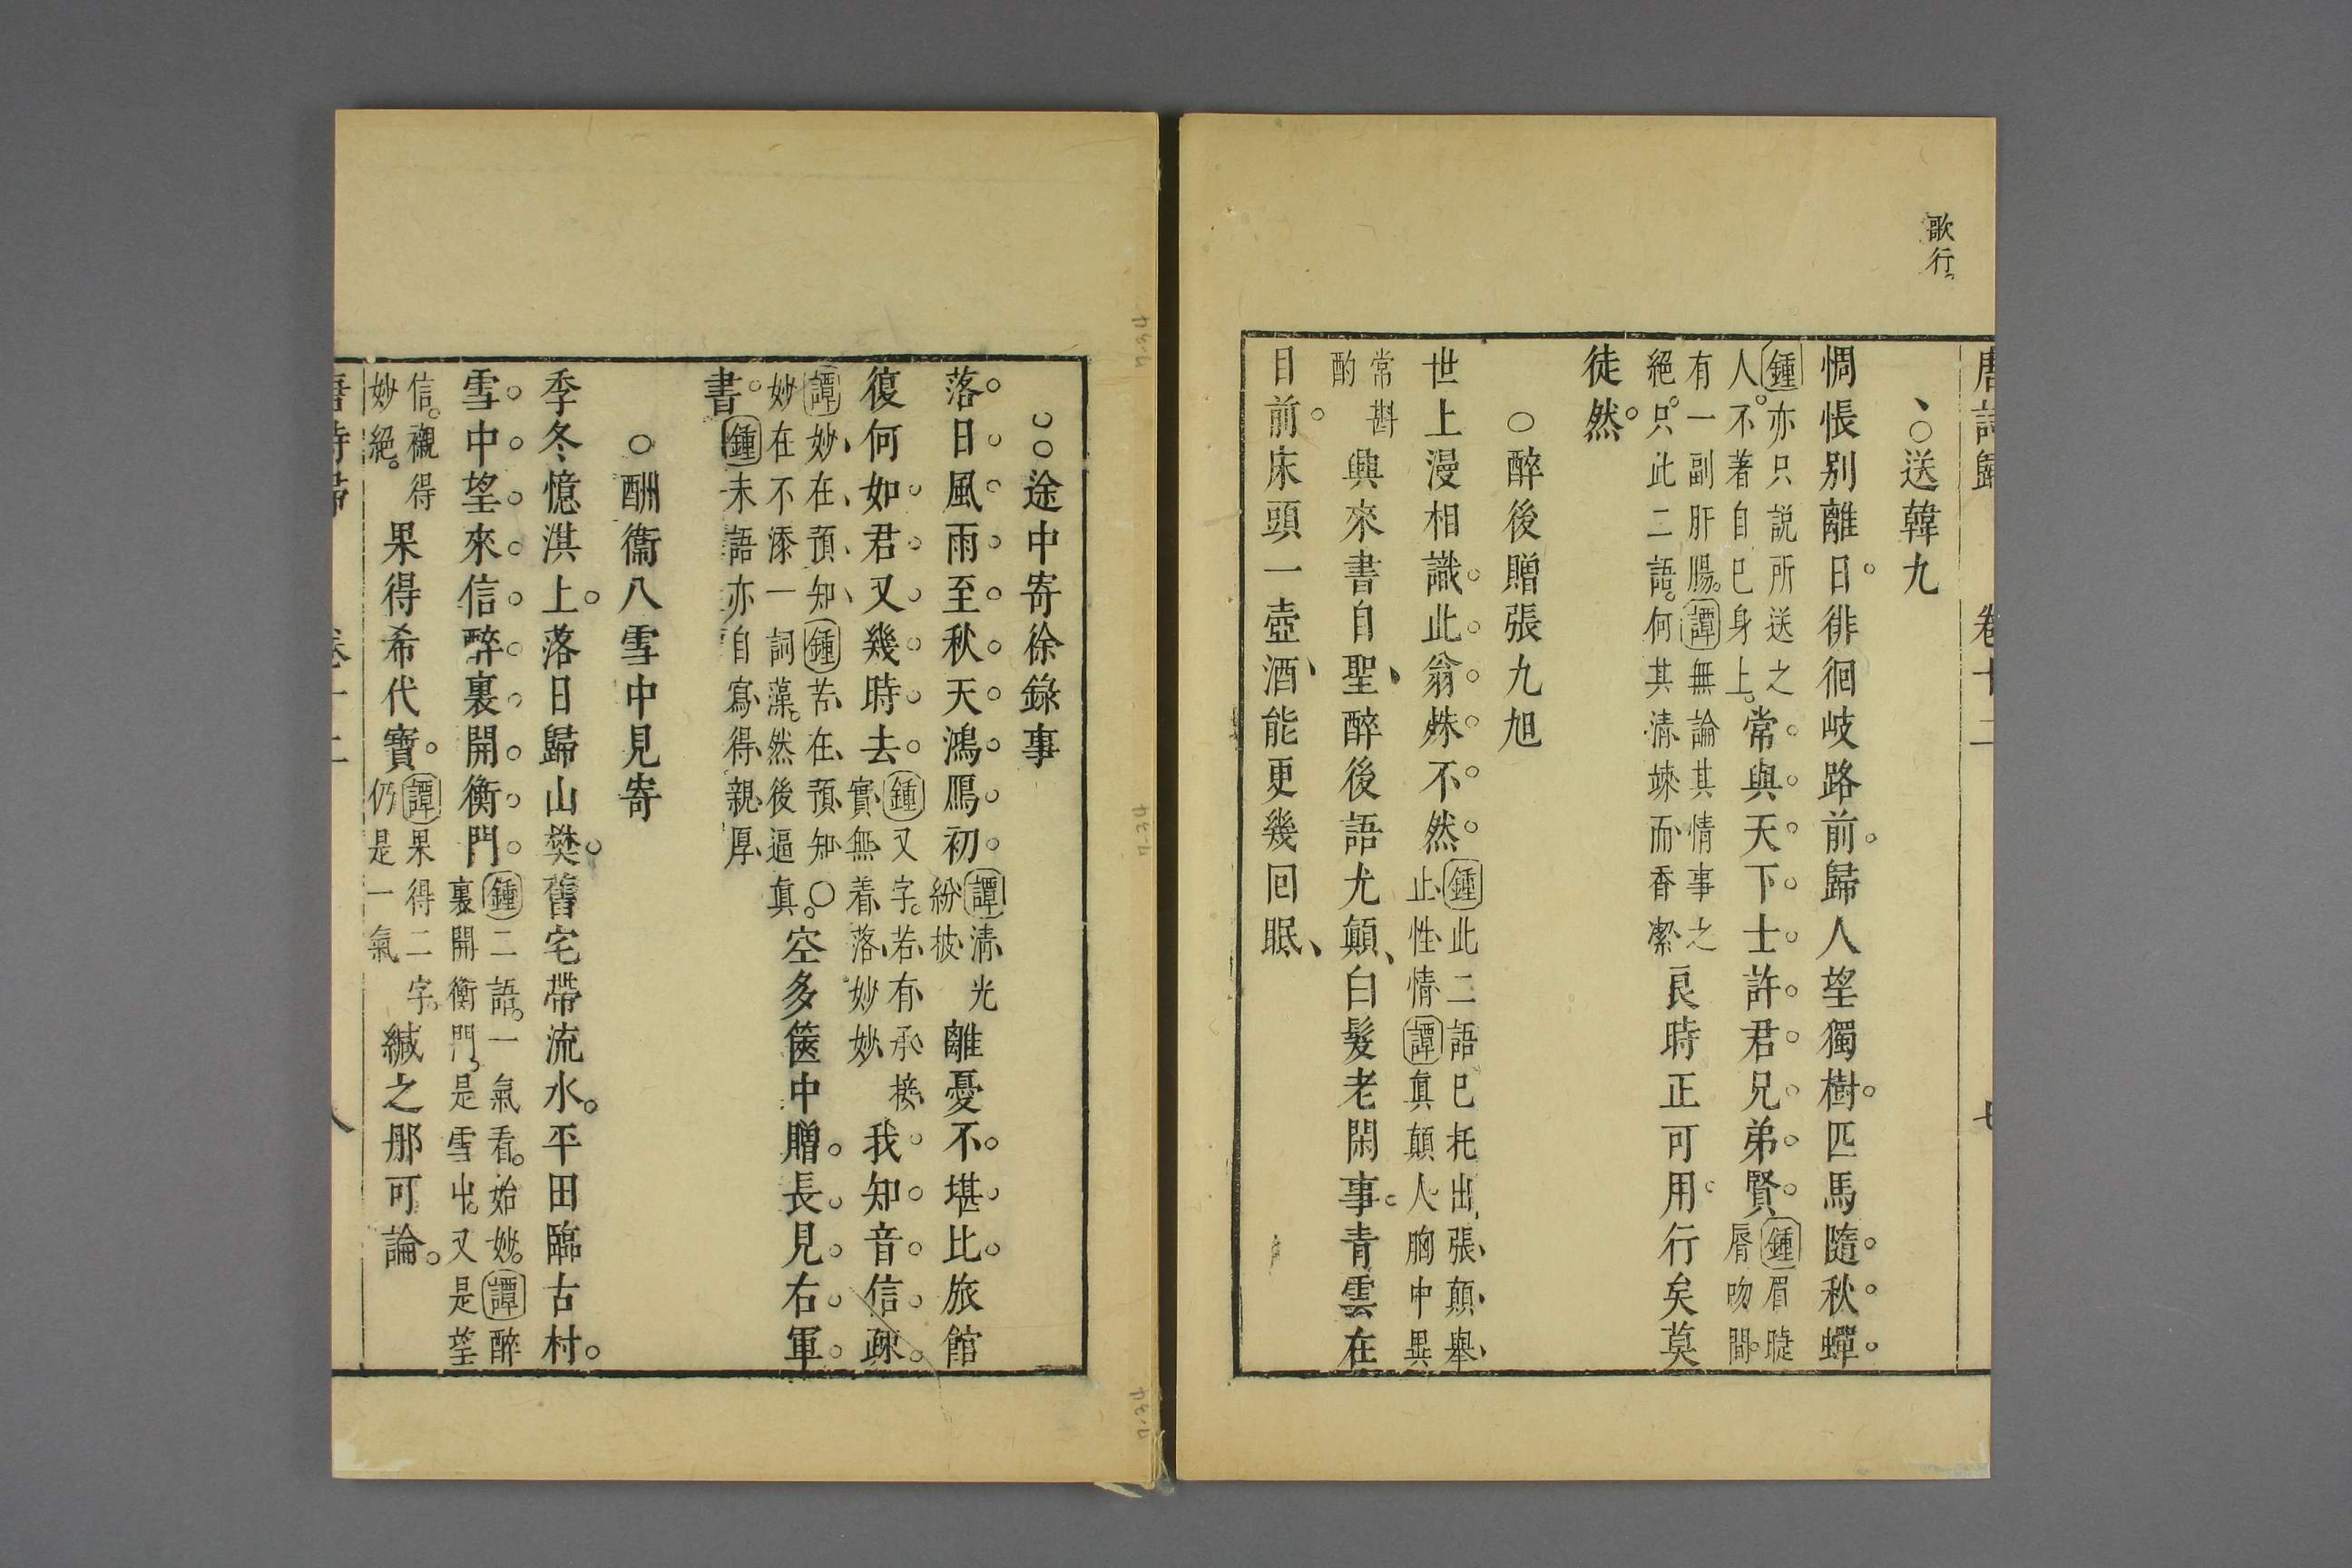 歌行
唐詩歸 卷十二 七
送韓九
惆悵别離日徘徊岐路前歸人望獨樹匹馬隨秋蟬
鍾亦只説所送之人不著自巳身上常與天下士許君兄弟賢鍾眉睫脣吻間
有一副肝腸譚無論其情事之絕只此二語何其清竦而香潔良時正可用行矣莫
徒然
醉後贈張九旭
世上漫相識此翁殊不然鍾此二語巳托出張顛舉止性情譚真顛人胸中異
常斟酌興來書自聖醉後語尤顛白髮老閑事青雲在
目前床頭一壺酒能更幾回眠
途中寄徐錄事
落日風雨至秋天鴻鴈初譚清光紛披離憂不堪比旅館
復何如君又幾時去鍾又字若有承接實無着落妙妙我知音信疎
譚妙在預知鍾苦在預知○妙在不添一詞藻然後逼真空多篋中贈長見右軍
書鍾末語亦自寫得親厚
酬衞八雪中見寄
季冬憶淇上落日歸山樊舊宅帶流水平田臨古村
雪中望來信醉裏開衡門鍾二語一氣看始妙譚醉裏開衡門是雪出又是望
信襯得妙絕果得希代寶譚果得二字仍是一氣緘之那可論
唐詩歸 卷十二 八